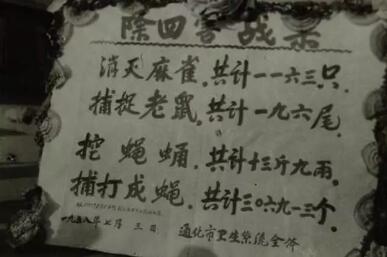 除四害战示
消灭麻雀，共计一一六三只，
捕捉老鼠，共计一九六尾，
挖蝇蛹．共计十三斤九两．
捕打成蝇，共计三〇六九一三个．
一九五八年七月三日 通化市卫生系统全体